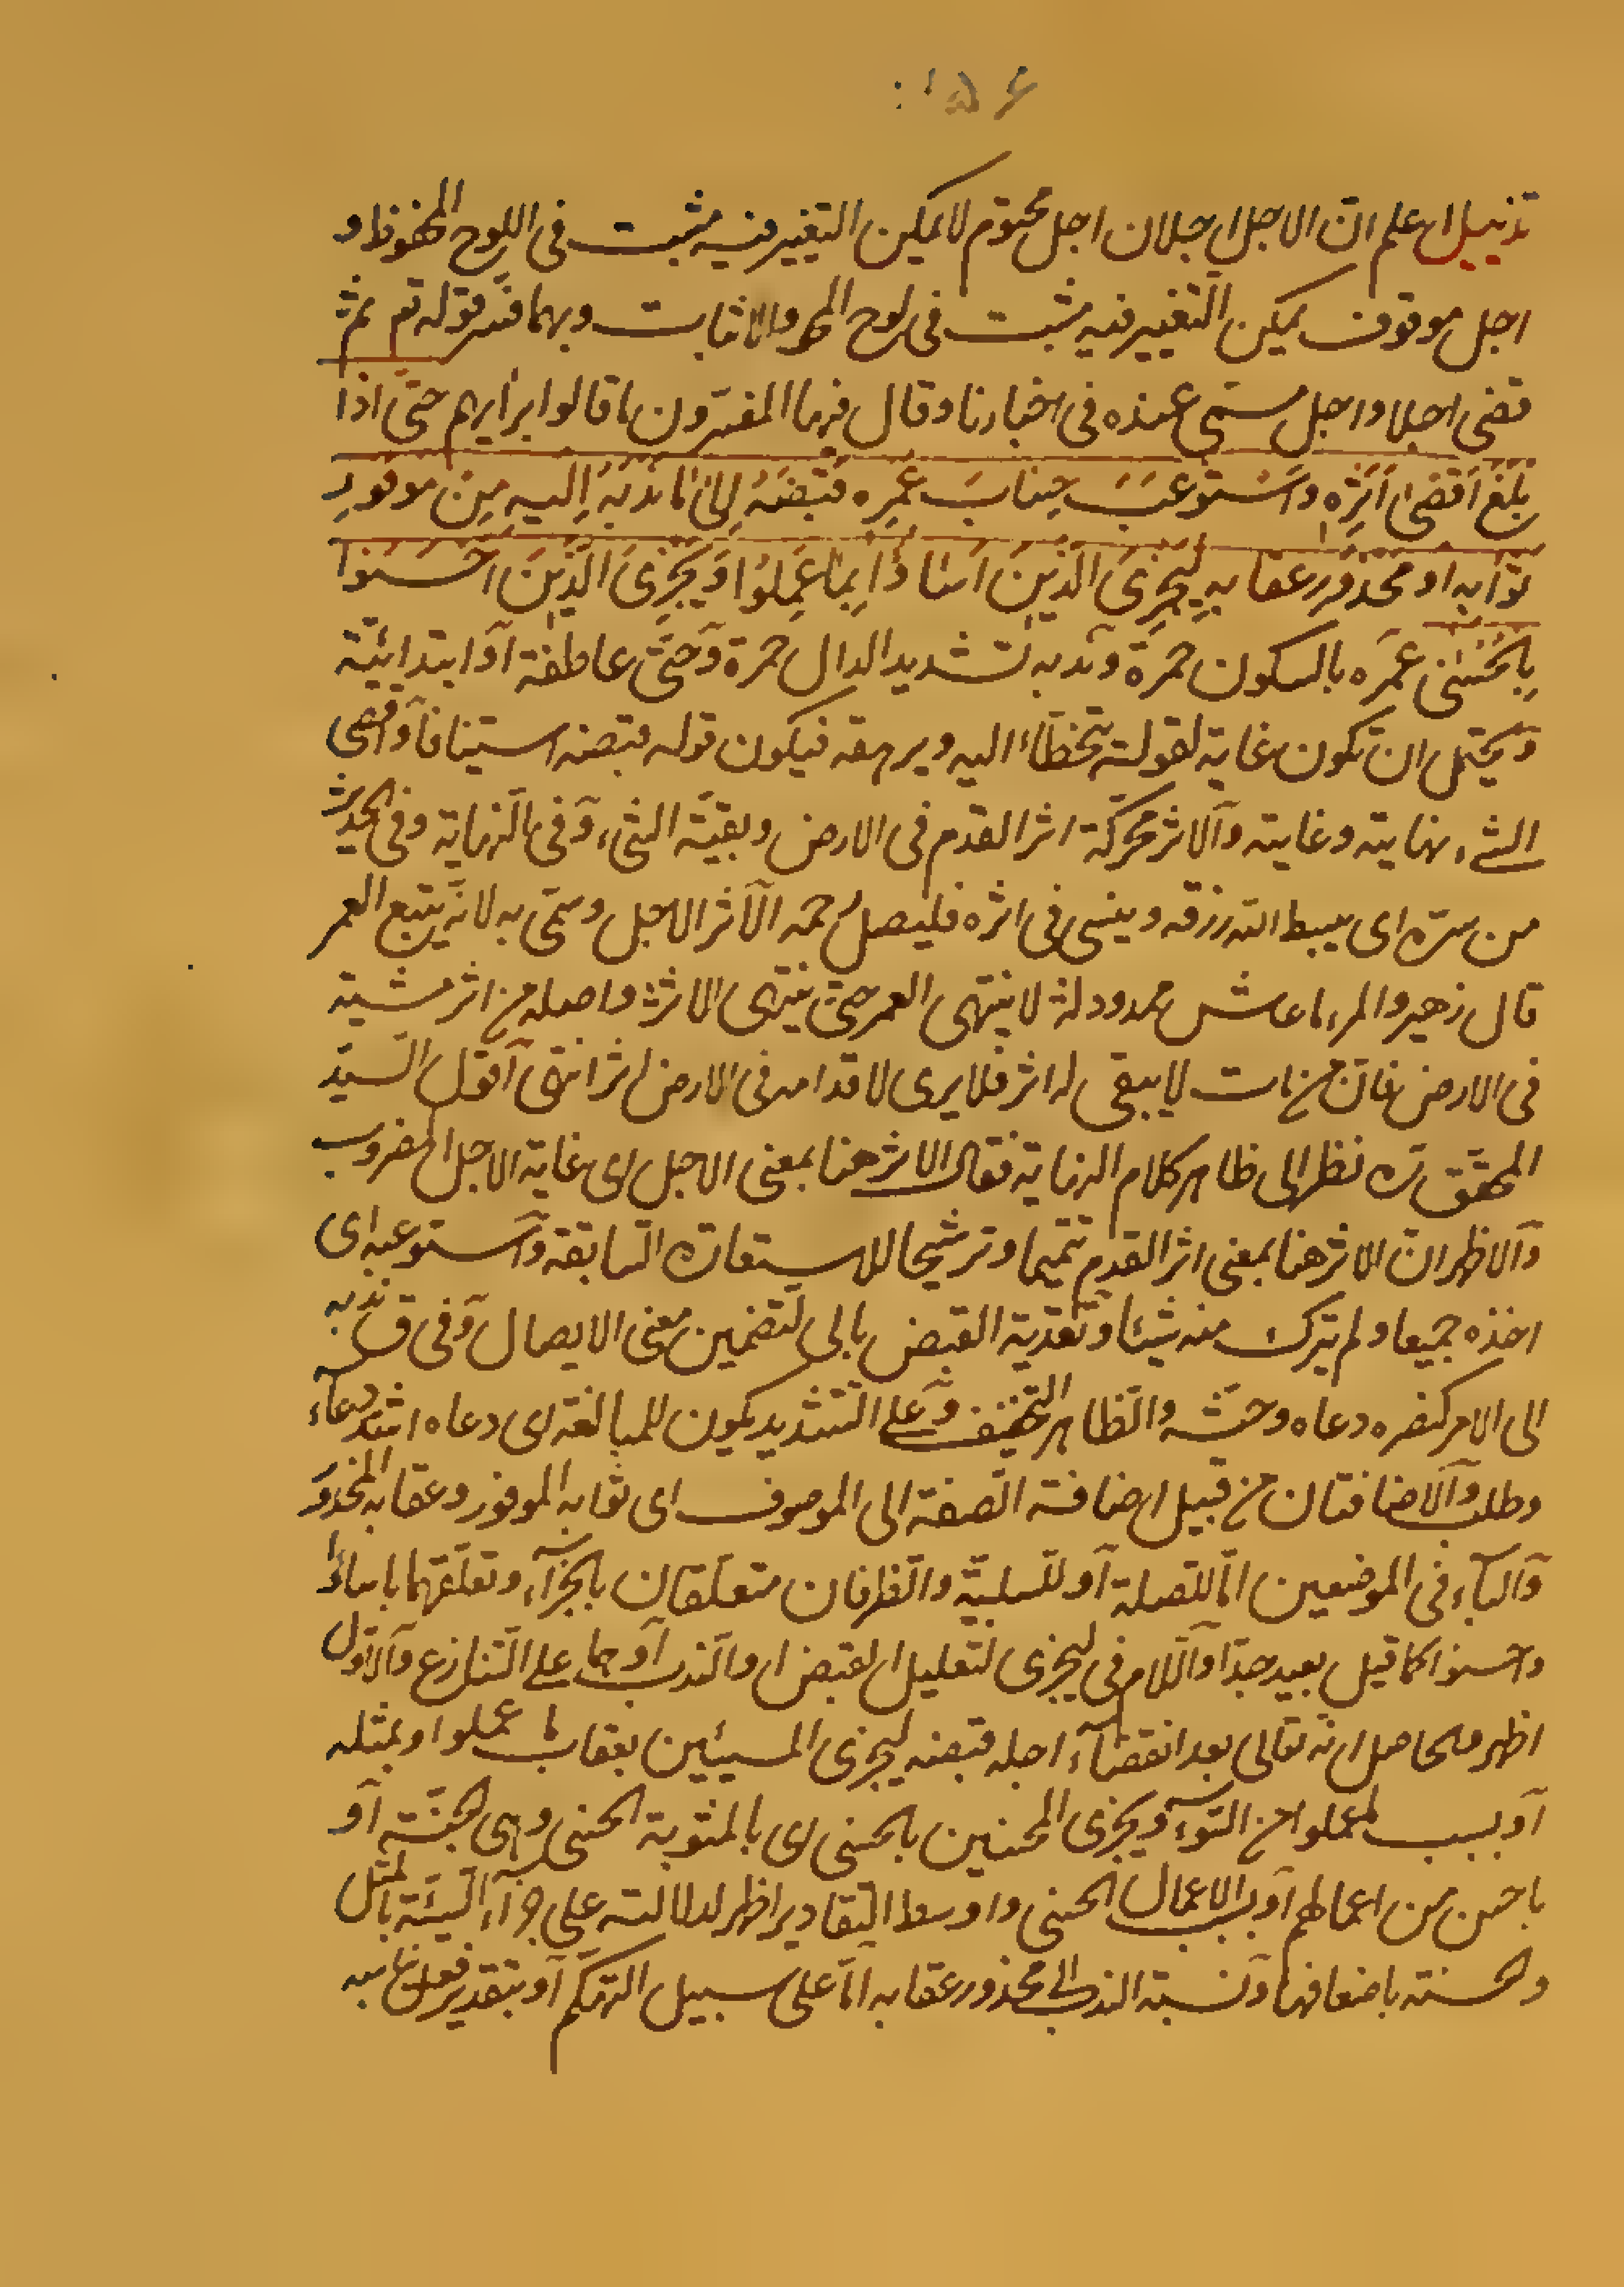 ۱۵۶
تذنیبیل اعلم انّ الاجل اجلان اجل محتوم لا یمکن التغییر فیه مثبت فی اللوح المحفوظ و
اجل موقوف یمکن التغییر فیه مثبت فی لوح المحو والاثبات وبهما فسّر قوله تم ثمّ
قضی اجلا واجل مسمّی عنده فی اخبارنا وقال فیها المفسّرون ما قالوا ابراهیم حتّی اذا
بَلَغَ اَقصٰی اَثَرِه وَاسْتَوعَبَ حِسَابَ عُمْرِه قَبَضَهُ اِلیٰ مٰا نَدَبَهُ اِلَیهِ مِن مَوفُورِ
ثَوَابِه او محذورِ عقابِهِ لِیَجزِیَ الَّذینَ اَسٰاؤُا بِمٰا عَمِلُوا وَیَجْزِیَ الَّذینَ اَحْسَنُوا
بِالحُسْنیٰ عمره بالسکون حمرة وندبه بتشدید الدال حمرة وحتّی عاطفة او ابتدائیّة
ویحتمل ان تکون غایة لقوله یتخطّأ الیه ویرهقه فیکون قوله قبضه استینافا واقصی
الشیء نهایته وغایته والاثر محرکة اثر القدم فی الارض وبقیّة الشیء وفی النهایة وفی الحدیث
من سرّه ای یبسط الله رزقه وینسی فی اثره فلیصل رحمه الاثر الاجل وسمّی به لانّه یتبع العمر
قال زهیر والمرء ما عاش ممدود له لا ینتهی العمر حتّی ینتهی الاثر واصله من اثر مشیته
فی الارض فانّ من مات لا یبقی له اثر فلا یری لاقدامه فی الارض اثر انتهی اقول السیّد
المحقّق ره نظر الی ظاهر کلام النهایة فقال الاثر هنا بمعنی الاجل ای غایة الاجل المضروب
والاظهر انّ الاثر هنا بمعنی اثر القدم تتمیما وترشیحا للاستعارة السابقة واستوعبه ای
اخذه جمیعا ولم یترک منه شیئا وتعدیة القبض بالی لتضمین معنی الایصال وفی ق ندبه
الی الامر کنصره دعاه وحثّه والظاهر التخفیف وعلی التشدید یکون للمبالغة ای دعاه اشد دعاء
وطلب والاضافتان من قبیل اضافة الصفة الی الموصوف ای ثوابه الموفور وعقابه المحذور
والباء فی الموضعین امّا للصلة او للسببیّة والظرفان متعلّقان بالجزاء وتعلّقهما باساؤا
واحسنوا کما قیل بعید جدّا واللام فی لیجزی لتعلیل القبض او الندب او هما علی التنازع والاوّل
اظهر والحاصل انّه تعالی بعد انقضاء اجله قبضه لیجزی المسیئین بعقاب ما عملوا او بمثله
او بسبب ما عملوا من السوء ویجزی المحسنین بالحسنی ای بالمثوبة الحسنی وهی الجنّة او
باحسن من اعمالهم او بسبب الاعمال الحسنی واوسط التقادیر اظهر لدلالته علی جزاء السیّئة بالمثل
والحسنة باضعافها ونسبة الندب الی محذور عقابه امّا علی سبیل التهکّم او بتقدیر فعل یناسبه